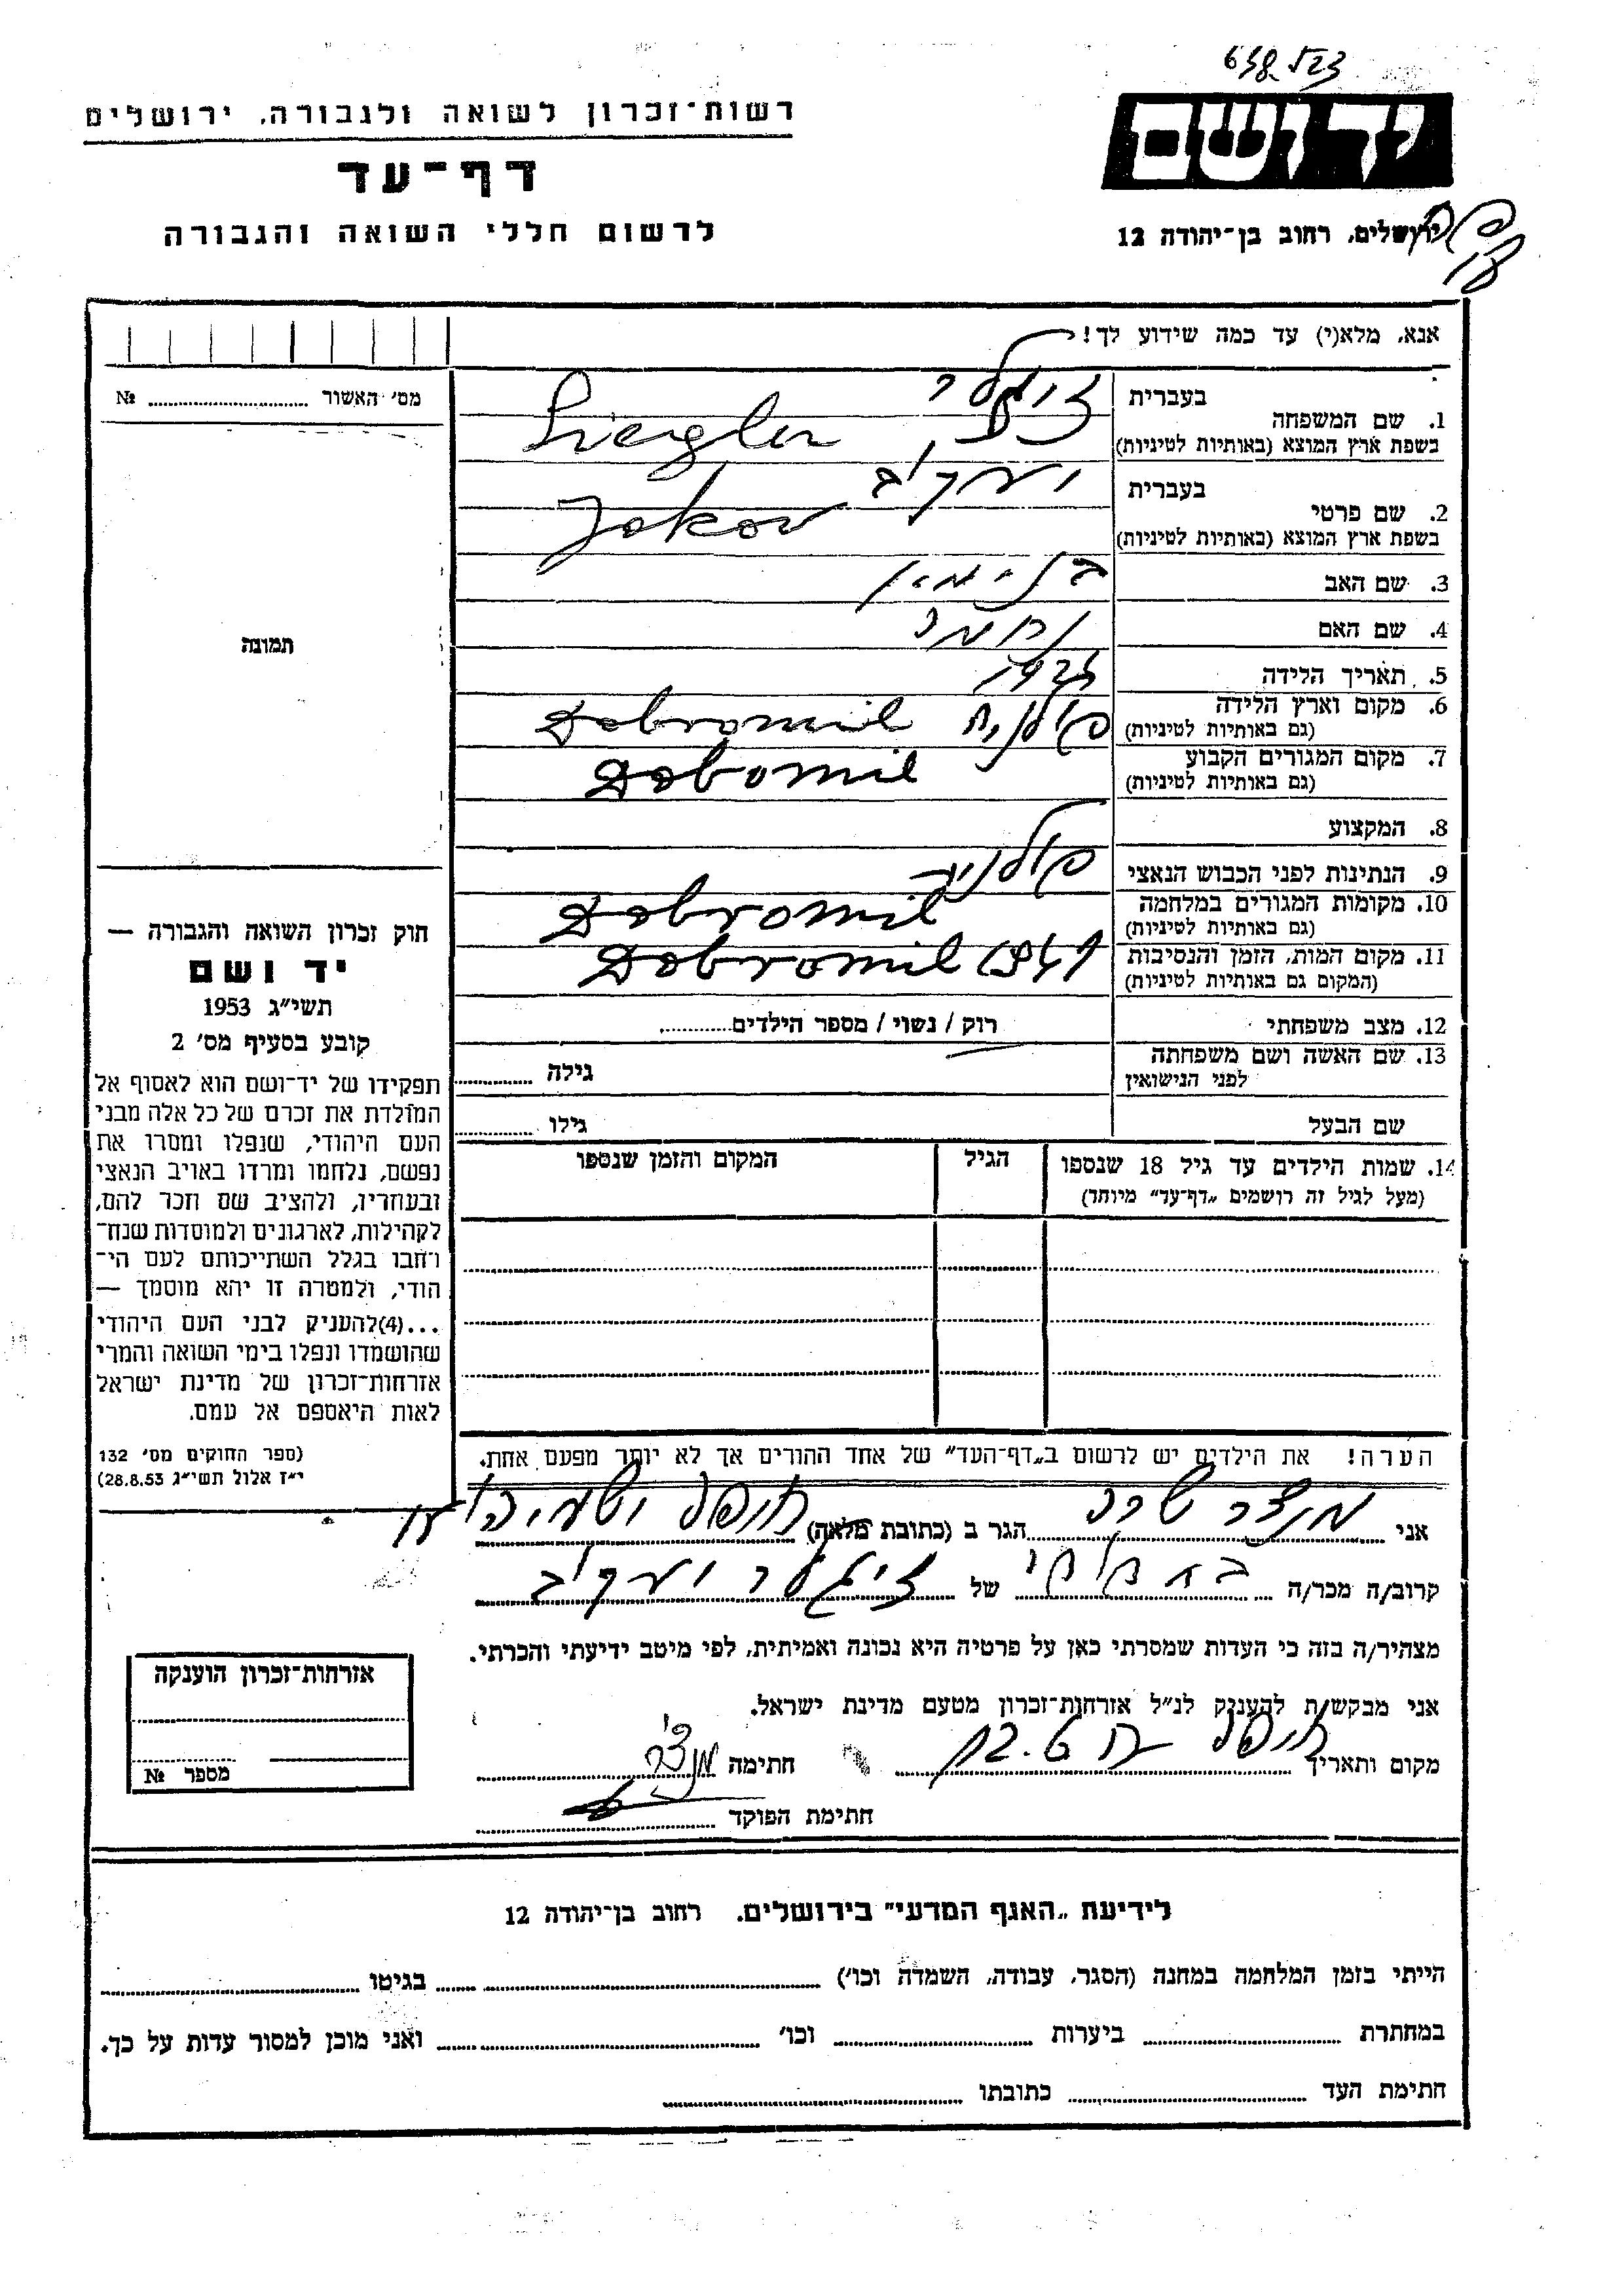 638 523
רשות־זכרון לשואה ולגבורה, ירושלים
יד ושם
דף־עד
לרשום חללי השואה והגבורה
ירושלים, רחוב בן־יהודה 12
אנא, מלא(י) עד כמה שידוע לך!
מס' האשור № ..........
תמונה
1. שם המשפחה
בעברית
ציגלר
בשפת ארץ המוצא (באותיות לטיניות)
Ziegler
2. שם פרטי
בעברית
יעקב
בשפת ארץ המוצא (באותיות לטיניות)
Jakov
3. שם האב בנימין
4. שם האם
5. תאריך הלידה
6. מקום וארץ הלידה
(גם באותיות לטיניות)
Dobromil פולניה
7. מקום המגורים הקבוע
(גם באותיות לטיניות)
Dobomil
8. המקצוע
9. הנתינות לפני הכבוש הנאצי פולנית
10. מקומות המגורים במלחמה
(גם באותיות לטיניות)
Dobromil
11. מקום המות, הזמן והנסיבות
(המקום גם באותיות לטיניות)
Dobromil
12. מצב משפחתי רוק / נשוי / מספר הילדים..........
13. שם האשה ושם משפחתה
לפני הנישואין
גילה ..........
שם הבעל גילו ..........
14. שמות הילדים עד גיל 18 שנספו
(מעל לגיל זה רושמים „דף־עד" מיוחד)
הגיל
המקום והזמן שנספו
הערה! את הילדים יש לרשום ב„דף־העד" של אחד ההורים אך לא יותר מפעם אחת.
חוק זכרון השואה והגבורה —
יד ושם
תשי״ג 1953
קובע בסעיף מס' 2
תפקידו של יד־ושם הוא לאסוף אל
המולדת את זכרם של כל אלה מבני
העם היהודי, שנפלו ומסרו את
נפשם, נלחמו ומרדו באויב הנאצי
ובעוזריו, ולהציב שם וזכר להם,
לקהילות, לארגונים ולמוסדות שנח־
רבו בגלל השתייכותם לעם הי־
הודי, ולמטרה זו יהא מוסמך —
...(4)להעניק לבני העם היהודי
שהושמדו ונפלו בימי השואה והמרי
אזרחות־זכרון של מדינת ישראל
לאות היאספם אל עמם.
(ספר החוקים מס' 132
י״ז אלול תשי״ג 28.8.53)
אני מנצר הגר ב (כתובת מלאה) חיפה
קרוב/ה מכר/ה של ציגלר יעקב
מצהיר/ה בזה כי העדות שמסרתי כאן על פרטיה היא נכונה ואמיתית, לפי מיטב ידיעתי והכרתי.
אני מבקש/ת להעניק לנ״ל אזרחות־זכרון מטעם מדינת ישראל.
מקום ותאריך חיפה חתימה
חתימת הפוקד
אזרחות־זכרון הוענקה
מספר №
לידיעת „האגף המדעי" בירושלים. רחוב בן־יהודה 12
הייתי בזמן המלחמה במחנה (הסגר, עבודה, השמדה וכו') .......... בגיטו ..........
במחתרת .......... ביערות .......... וכו' .......... ואני מוכן למסור עדות על כך.
חתימת העד .......... כתובתו ..........